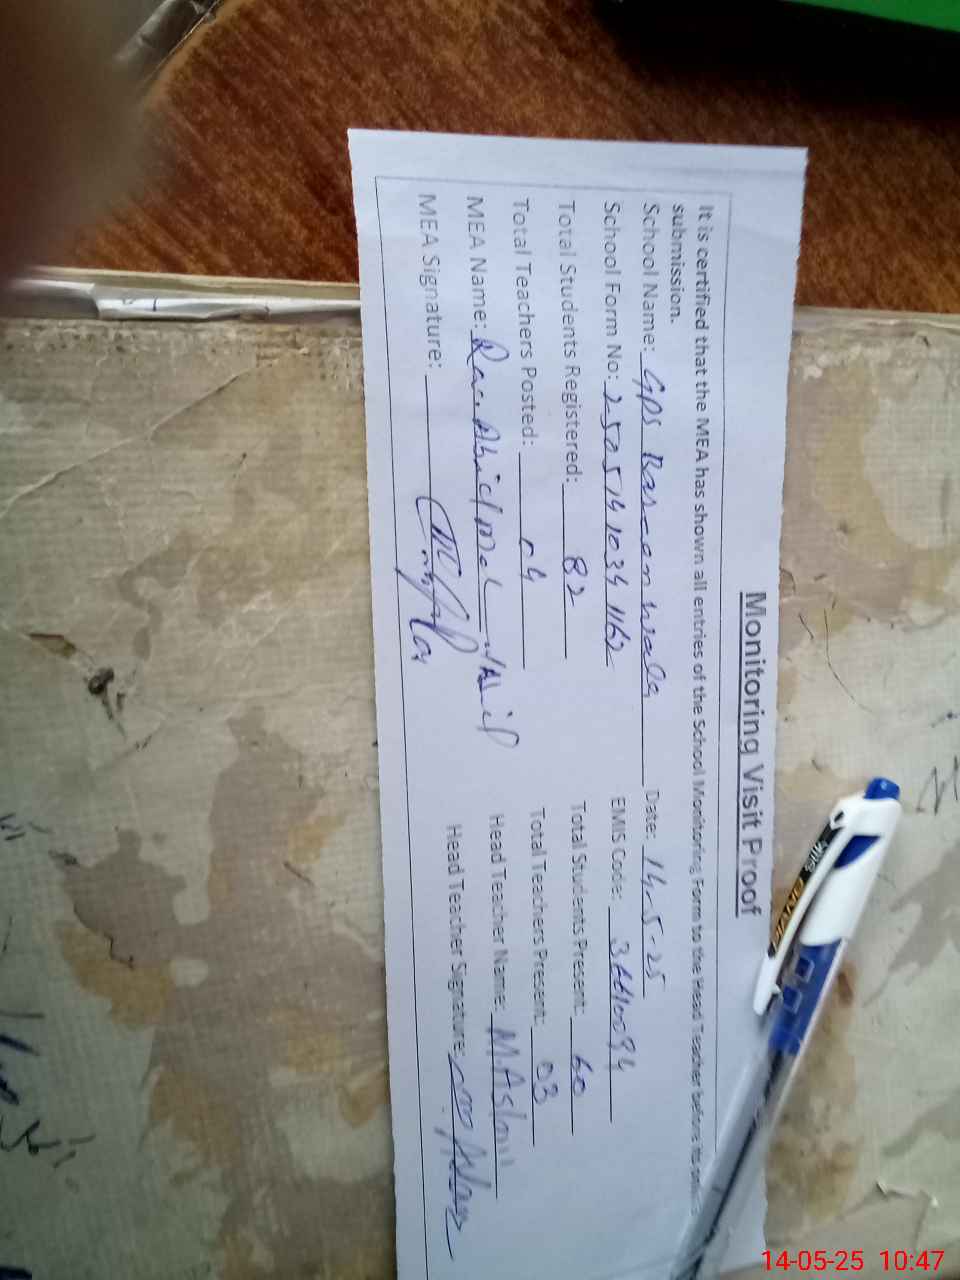 Monitoring Visit Proof
It is certified that the MEA has shown all entries of the School Monitoring Form to the Head Teacher before its
submission.
School Name: GPS Date: 14-5-25
School Form No: 2505141034 1162 EMIS Code:
Total Students Registered: 82 Total Students Present: 60
Total Teachers Posted: 04 Total Teachers Present: 03
MEA Name: Head Teacher Name: M. Aslam
MEA Signature: Head Teacher Signature:
PIANO
silk
14-05-25 10:47